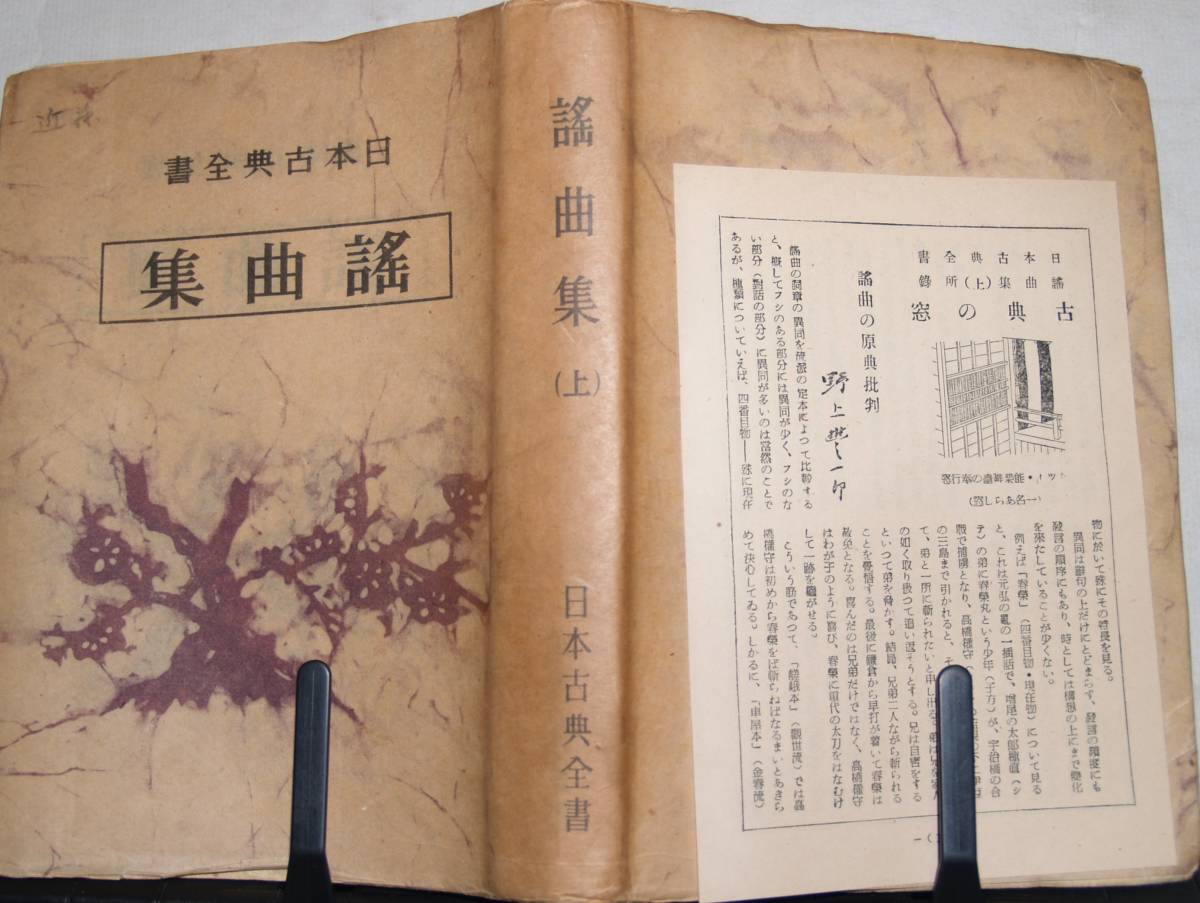 日本古典全書
謠曲集
謠曲集(上)
日本古典全書
日本古典全書
謠曲集(上)所錄
古典の窓
能樂舞臺の奉行窓
(一名あらし窓)
謠曲の原典批判
野上豐一郎
謠曲の詞章の異同を流派の定本によつて比較する
と、概してフシのある部分には異同が少く、フシのな
い部分(對話の部分)に異同が多いのは當然のことで
あるが、種類についていえば、四番目物——殊に現在
物に於いて殊にその特長を見る。
異同は辭句の上だけにとどまらず、發言の順序にも
發言の順序にもあり、時としては構想の上にまで變化
を來たしていることが少くない。
例えば「春榮」(四番目物・現在物)について見る
と、これは元弘の亂の一插話で、增尾の太郎種直(シ
テ)の弟に春榮丸という少年(子方)が、宇治橋の合
戰で捕虜となり、高橋權守
の三島まで引かれると、
て、弟と一所に斬られたいと申し出る。
の如く取り扱つて追い返そうとする。兄は自害をする
といつて弟を脅かす。結局、兄弟二人ながら斬られる
ことを覺悟する。最後に鎌倉から早打が着いて春榮は
赦免となる。喜んだのは兄弟だけではなく、高橋權守
はわが子のように喜び、春榮に重代の太刀をはなむけ
して一跡を繼がせる。
こういう筋であつて、「嵯峨本」(觀世流)では高
橋權守は初めから春榮をば斬らねばなるまいとあきら
めて決心してゐる。しかるに、「車屋本」(金春流)